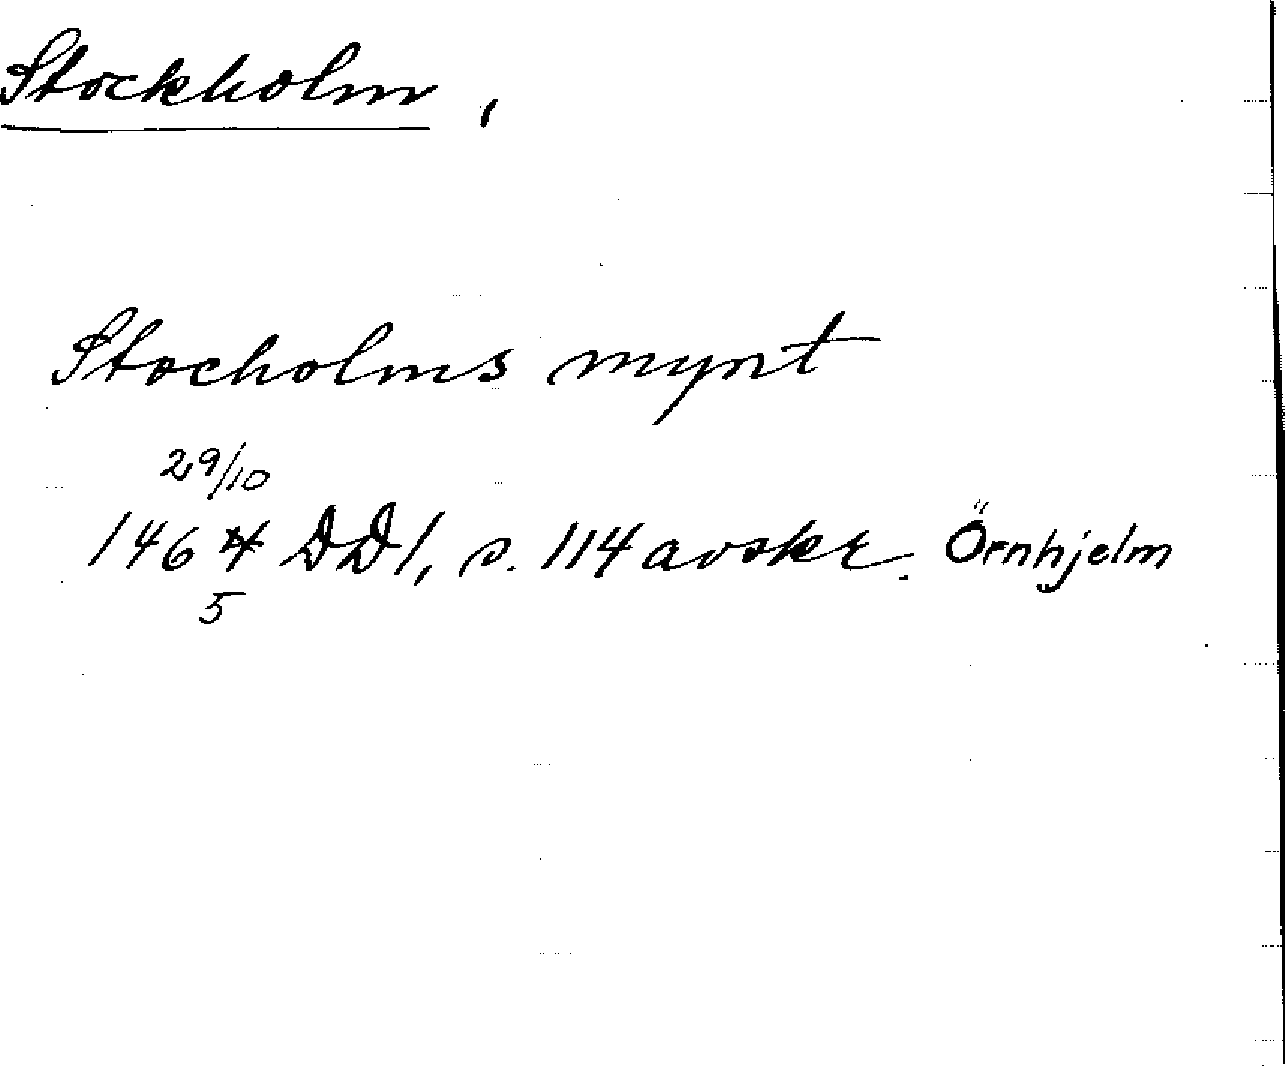 Stockholm,
Stocholms mynt
29/10
1464 DD1, s. 114 avskr. Örnhjelm
5